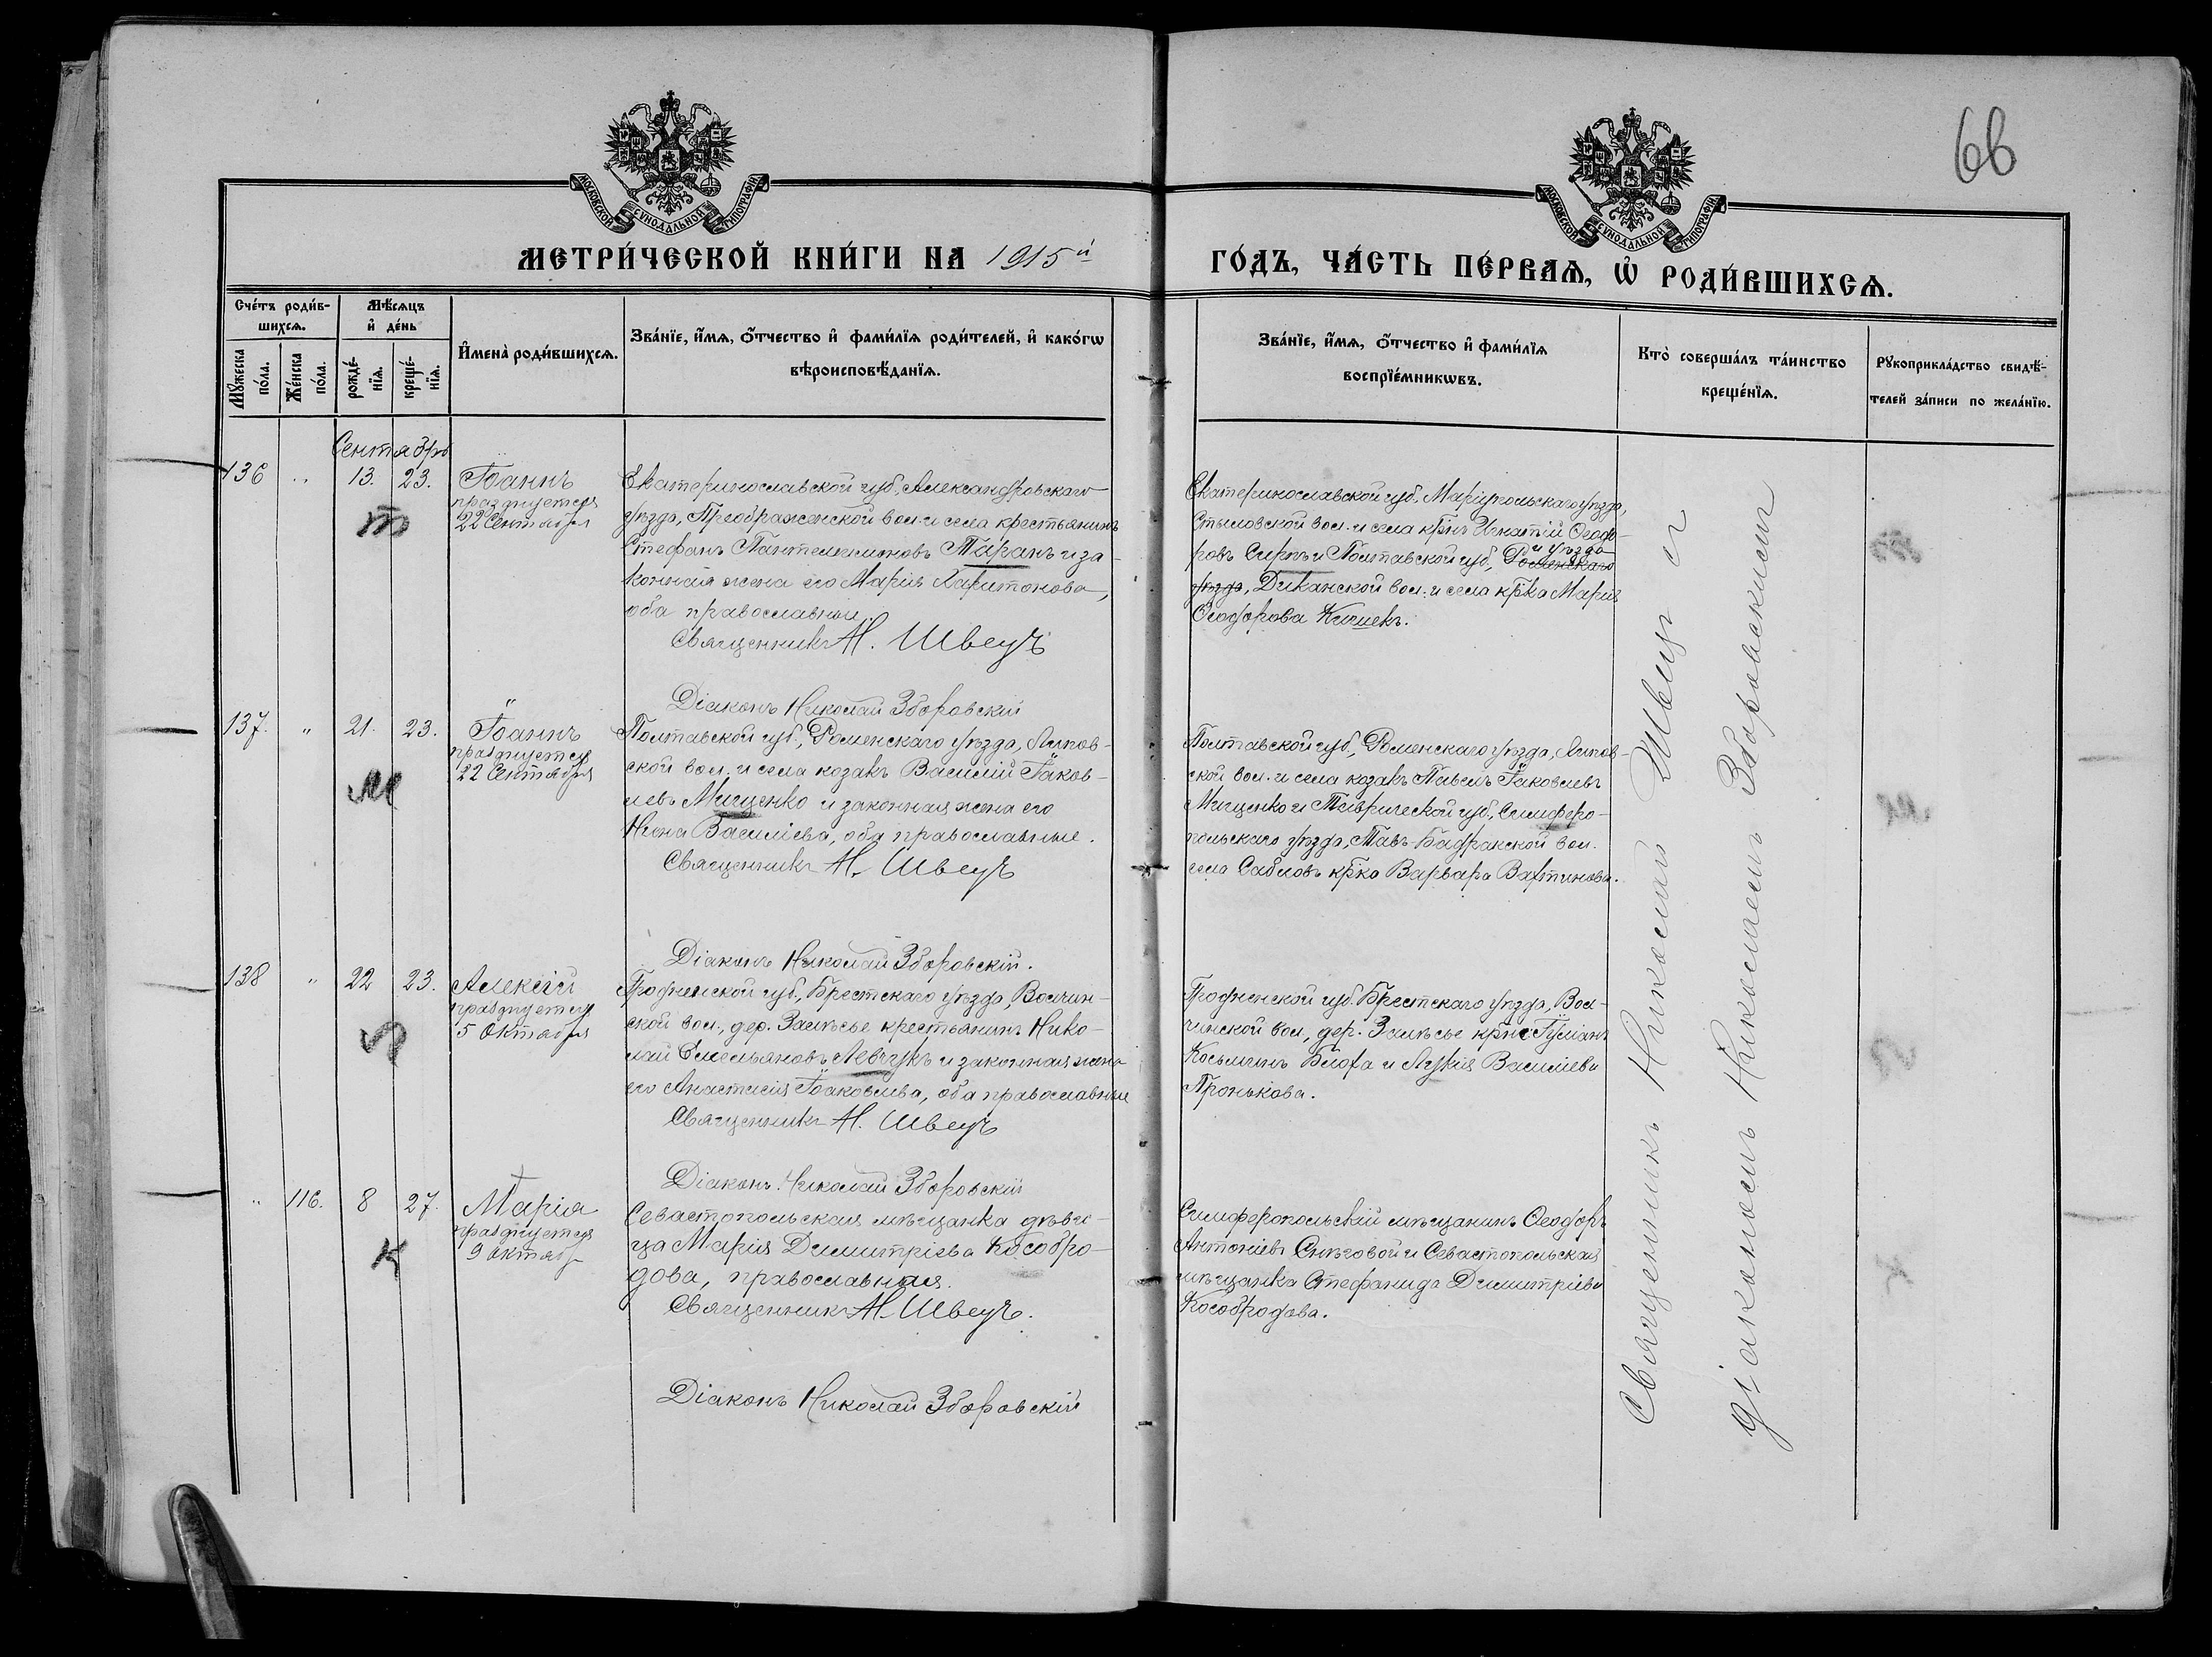 66
МОСКОВСКОЙ СУНОДАЛЬНОЙ ТИПОГРАФІИ
МОСКОВСКОЙ СУНОДАЛЬНОЙ ТИПОГРАФІИ
МЕТРИ́ЧЕСКОЙ КНИ́ГИ НА 1915й
ГО́ДЪ, ЧА́СТЬ ПЕ́РВАѦ, Ѡ҆ РОДИ́ВШИХСѦ.
Сче́тъ роди́в-
шихсѧ.
Мꙋ́жеска по́ла.
Же́нска по́ла.
Мѣ́сѧцъ
и҆ де́нь
рожде́-
нїѧ.
креще́-
нїѧ.
И҆мена̀ роди́вшихсѧ.
Зва́нїе, и҆́мѧ, ѻ҆́тчество и҆ фами́лїѧ роди́телей, и҆ како́гѡ
вѣроисповѣ́данїѧ.
Зва́нїе, и҆́мѧ, ѻ҆́тчество и҆ фами́лїѧ
воспрїе́мникѡвъ.
Кто̀ соверша́лъ та́инство
креще́нїѧ.
Рꙋкоприкла́дство свидѣ́-
телей за́писи по жела́нїю.
Сентябрь
136 " 13. 23. Іоаннъ
празднуется
22 Сентября
т
Екатеринославской губ., Александровскаго
уѣзда, Преображенской вол. и села крестьянинъ
Стефанъ Пантелеимоновъ Таранъ и за-
конная жена его Марія Харитонова,
оба православные.
Священникъ Н. Швецъ
Діаконъ Николай Зборовскій
Екатеринославской губ., Маріупольскаго уѣзда,
Стыловской вол. и села крнъ Игнатій Ѳеодо-
ровъ Сиръ и Полтавской губ., Роменскаго
и уѣзда
уѣзда, Диканской вол. и села крка Марія
Ѳеодорова
137. " 21. 23. Іоаннъ
празднуется
22 Сентября
М
Полтавской губ., Роменскаго уѣзда, Липов-
ской вол. и села козакъ Василій Іаков-
левъ Мищенко и законная жена его
Нина Василіева, оба православные.
Священникъ Н. Швецъ
Діаконъ Николай Зборовскій.
Полтавской губ., Роменскаго уѣзда, Липов-
ской вол. и села козакъ Павелъ Іаковлевъ
Мищенко и Таврической губ., Симферо-
польскаго уѣзда, Тавъ-Бадракской вол.
села Сабловъ крка Варвара Вартинова.
138 " 22 23. Алексій
празднуется
5 Октября
Л
Гродненской губ., Брестскаго уѣзда, Волчин-
ской вол., дер. Залѣсье крестьянинъ Нико-
лай Емельяновъ Левчукъ и законная жена
его Анастасія Іаковлева, оба православные
Священникъ Н. Швецъ
Діаконъ Николай Зборовскій
Гродненской губ. Брестскаго уѣзда, Вол-
чинской вол., дер. Залѣсье крнъ Іуліанъ
Косьминъ и Лукія Василіева
Пронькова.
" 116. 8 27. Марія
празднуется
9 Октяб
К
Севастопольская мѣщанка дѣви-
ца Марія Димитріева Кособро-
дова, православная.
Священникъ Н. Швецъ.
Діаконъ Николай Зборовскій
Симферопольскій мѣщанинъ Ѳеодоръ
Антоніевъ Снѣговой и Севастопольская
мѣщанка Стефанида Димитріева
Кособродова.
Священникъ Николай Швецъ съ
діакономъ Николаемъ Зборовскимъ